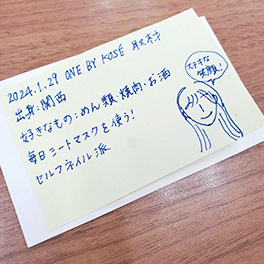 2024.1.29 ONE BY KOSÉ 取材
出身:関西
好きなもの:めん類 焼肉・お酒
毎日シートマスクを使う!
セルフネイル派
ステキな
笑顔!